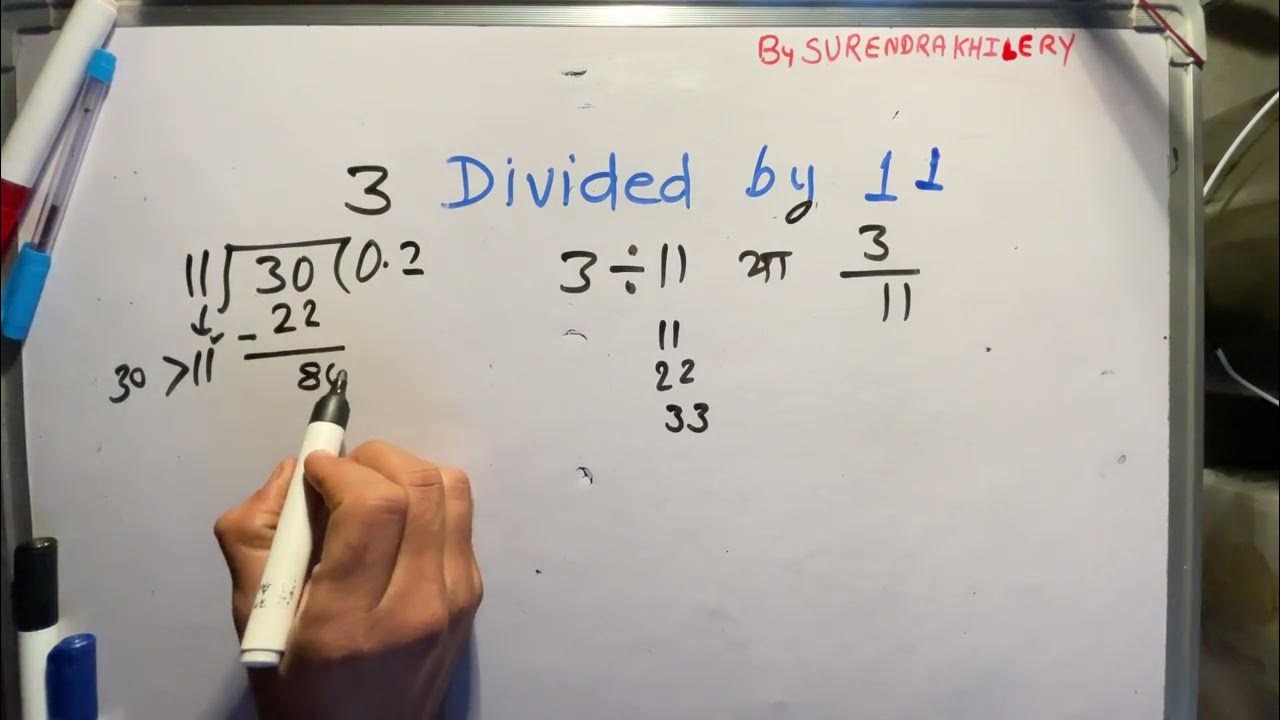 By SURENDRA KHILERY
3 Divided by 11
11 30 (0.2
- 22
30 >11
8
3 ÷ 11 या 3
11
11
22
33